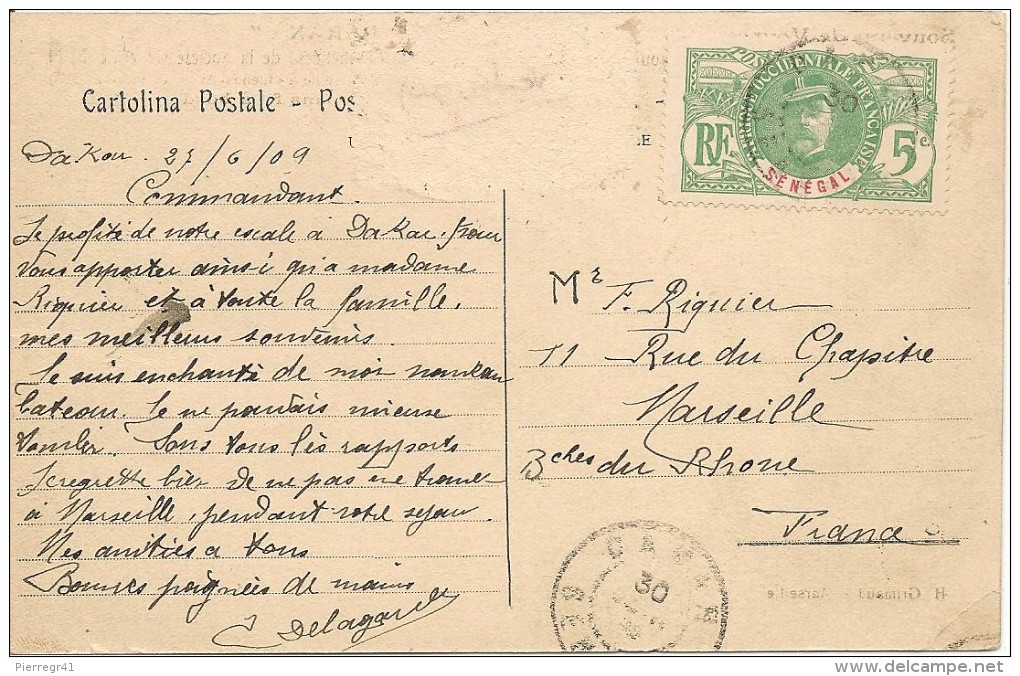 Cartolina Postale - Pos
Dakar. 27/6/09
Commandant.
Je profite de notre escale à Dakar. pour
vous apporter ainsi qu'a madame
Riquier et à toute la famille,
mes meilleurs souvenirs.
Je suis enchanté de mon nouveau
bateau. Je ne pouvais mieuse
tomber. Sous tous lès rapports
Je regrette bien de ne pas me trouver
à Marseille, pendant votre sejour.
Mes amitiés a tous
Bonnes poignées de mains
Delagarde
AFRIQUE OCCIDENTALE FRANÇAISE
POSTES
RF
5 c.
SÉNÉGAL
30
Mr F. Riquier
11 Rue du Chapitre
Marseille
Bches du Rhone
France
30
H. Grimaud - Marseille
Pierregr41
delcampe.net